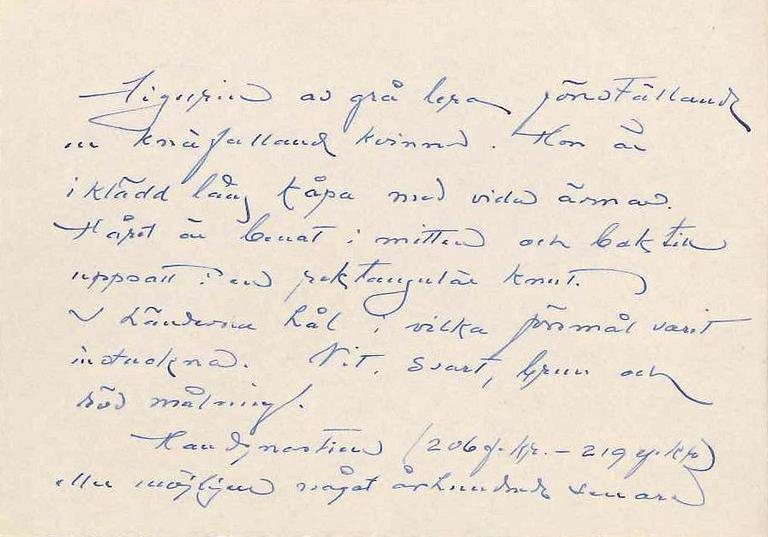 Figurin av grå lera föreställande
en knäfalland kvinna. Hon är
iklädd lång kåpa med vida ärmar.
Håret är benat i mitten och baktill
uppsatt i en rektangulär knut.
I händerna hål i vilka föremål varit
instuckna. Vit, svart, brun och
röd målning.
Handynastien (206 f. Kr. – 219 e. Kr)
eller möjligen något århundrade senare